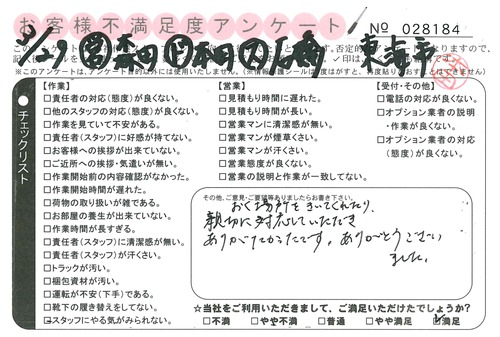 お客様不満足度アンケート
№ 028184
東海市
チェックリスト
【作業】
□責任者の対応(態度)が良くない。
□他のスタッフの対応(態度)が良くない。
□作業を見ていて不安がある。
□責任者(スタッフ)に好感が持てない。
□お客様への挨拶が出来ていない。
□ご近所への挨拶・気遣いが無い。
□作業開始前の内容確認がなかった。
□作業開始時間が遅れた。
□荷物の取り扱いが雑である。
□お部屋の養生が出来ていない。
□作業時間が長すぎる。
□責任者(スタッフ)に清潔感が無い。
□責任者(スタッフ)が汗くさい。
□トラックが汚い。
□梱包資材が汚い。
□運転が不安(下手)である。
□靴下の履き替えをしてない。
□スタッフにやる気がみられない。
【営業】
□見積もり時間に遅れた。
□見積もり時間が長い。
□営業マンに清潔感が無い。
□営業マンが煙草くさい。
□営業マンが汗くさい。
□営業態度が良くない。
□営業の説明と作業が一致してない。
【受付・その他】
□電話の対応が良くない。
□オプション業者の説明
・作業が良くない。
□オプション業者の対応
(態度)が良くない。
その他、ご意見・ご要望等ありましたらお書き下さい。
おく場所をきいてくれたり、
親切に対応していただき
ありがたかったです。ありがとうござい
ました。
☆当社をご利用いただきまして、ご満足いただけたでしょうか?
□不満 □やや不満 □普通 □やや満足 ☑満足